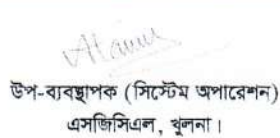 উপ-ব্যবস্থাপক (সিস্টেম অপারেশন)
এসজিসিএল, খুলনা।